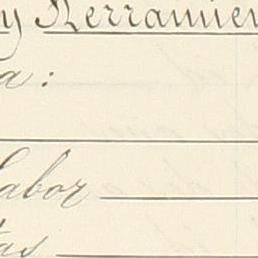 y Herramien
a:
labor
tas